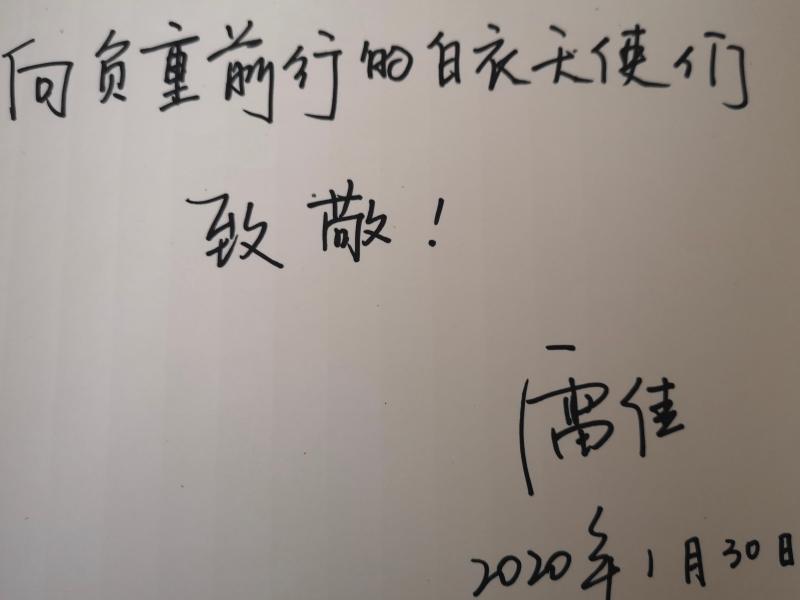 向负重前行的白衣天使们
致敬!
雷佳
2020年1月30日